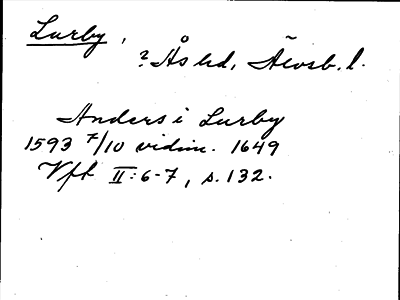 Lurby,
? Ås hd, Älvsb. l.
Anders i Lurby
1593 7/10 vidim. 1649
Vft II:6-7, s. 132.